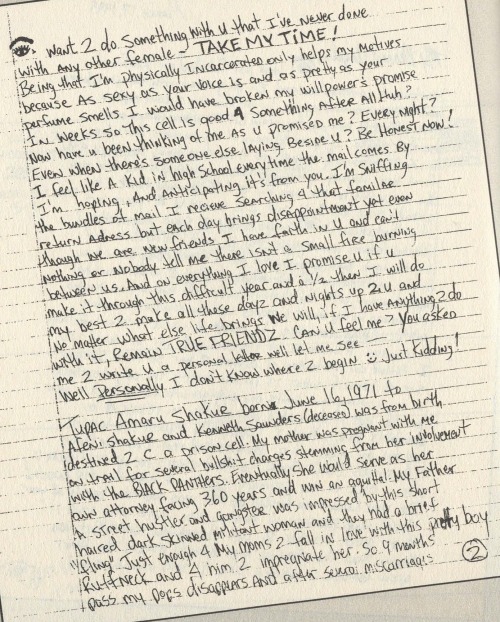 want 2 do Something with u that I've never done
with Any other female - TAKE MY TIME!
Being that I'm physically Incarcerated only helps my Motives
because As sexy as your voice is and as pretty as your
perfume smells I would have broken my willpower's promise
In weeks so this cell is good 4 Something After All Huh?
Now have u been thinking of me As u promised me? Every Night?
Even when there's someone else laying Beside u? Be Honest Now!
I feel like A kid in high School everytime the mail comes By
I'm hoping, And Anticipating it's from you. I'm Sniffing
the bundles of mail I recieve Searching 4 that familar
return Adress but each day brings disappointment yet even
though we are New friends I have faith in U and can't
nothing or Nobody tell me there isn't a small fire burning
between us. And on everything I love I promise u if u
make it through this difficult year and a 1/2 then I will do
my best 2 make all those dayz and Nights up 2 U. and
No matter what else life brings we will, if I have Anything 2 do
with it, Remain TRUE FRIENDZ. CAN U feel me? You asked
me 2 write U a personal letter well let me see —
Well Personally I don't know where 2 begin Just Kidding!
Tupac Amaru Shakur born June 16, 1971 to
Afeni Shakur and Kenneth Saunders (deceased) was from birth
destined 2 C a prison cell. My mother was pregnant with me
on trail for several bullshit charges stemming from her involvement
with the BlACK PANTHERS. Eventually She would serve as her
own attorney facing 360 years and win an aquital. My Father
A street hustler and gangster was impressed by this short
haired dark skinned militant woman and they had a brief
"fling" Just enough 4 My moms 2 fall in love with this pretty boy
Ruffneck and 4 him 2 impregnate her. So 9 months
pass my pops disappears And after several miscarriages
2